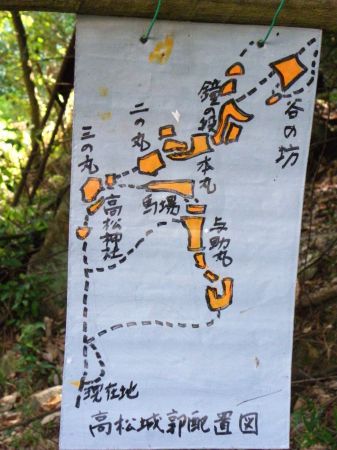 谷の坊
本丸
二の丸
三の丸
馬場
与助丸
高松神社
現在地
高松城郭配置図